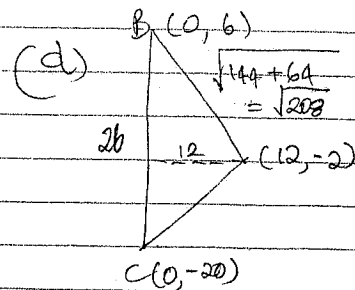 B (0, 6)
(d)
√144 + 64
= √208
26
12
(12, -2)
C(0, -20)